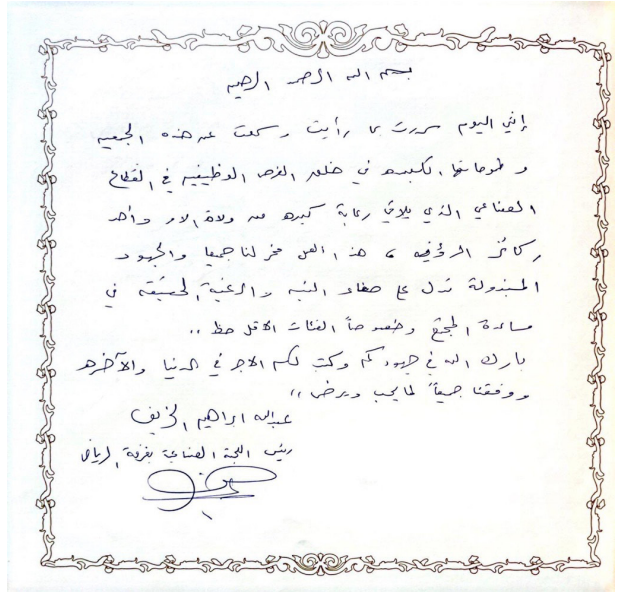 بسم الله الرحمن الرحيم
إنني اليوم سررت بما رأيت وسمعت عن هذه الجمعيه
وطموحاتها الكبيره في خلق الفرص الوظيفيه في القطاع
الصناعي الذي يلاقي رعاية كبيره من ولاة الامر وأحد
ركائز الرؤيه ، هذا العمل فخر لنا جميعا والجهود
المبذولة تدل على صفاء النيه والرغبة الحقيقه في
مساعدة المجتمع وخصوصاً الفئات الاقل حظ ،،
بارك الله في جهودكم وكتب لكم الاجر في الدنيا والآخره
ووفقنا جميعاً لما يحب ويرضى ،،
عبدالله ابراهيم الخريف
رئيس اللجنة الصناعية بغرفة الرياض